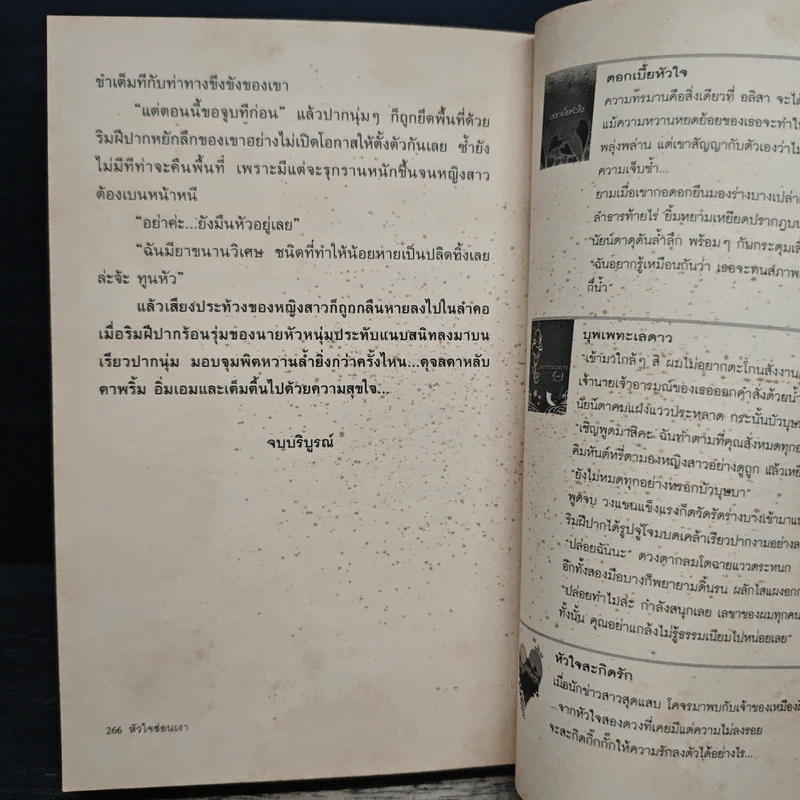 ขำเต็มทีกับท่าทางขึงขังของเขา
“แต่ตอนนี้ขอจูบทีก่อน” แล้วปากนุ่มๆ ก็ถูกยึดพื้นที่ด้วย
ริมฝีปากหยักลึกของเขาอย่างไม่เปิดโอกาสให้ตั้งตัวกันเลย ซ้ำยัง
ไม่มีทีท่าจะคืนพื้นที่ เพราะมีแต่จะรุกรานหนักขึ้นจนหญิงสาว
ต้องเบนหน้าหนี
“อย่าค่ะ...ยังมึนหัวอยู่เลย”
“ฉันมียาขนานวิเศษ ชนิดที่ทำให้น้อยหายเป็นปลิดทิ้งเลย
ล่ะจ้ะ ทูนหัว”
แล้วเสียงประท้วงของหญิงสาวก็ถูกกลืนหายลงไปในลำคอ
เมื่อริมฝีปากร้อนรุ่มของนายหัวหนุ่มประทับแนบสนิทลงมาบน
เรียวปากนุ่ม มอบจุมพิตหวานล้ำยิ่งกว่าครั้งไหน...ดุจลดาหลับ
ตาพริ้ม อิ่มเอมและเต็มตื้นไปด้วยความสุขใจ...
จบบริบูรณ์
266 หัวใจซ่อนเงา
ดอกเบี้ยหัวใจ
ความทรมานคือสิ่งเดียวที่ อลิสา จะได้
แม้ความหวานหยดย้อยของเธอจะทำให้
พลุ่งพล่าน แต่เขาสัญญากับตัวเองว่าไม่
ความเจ็บช้ำ...
ยามเมื่อเขากอดอกยืนมองร่างบางเปล่า
ลำธารท้ายไร่ ยิ้มหยามเหยียดปรากฏบน
นัยน์ตาดุดันล้ำลึก พร้อมๆ กับกระดุมเสื้
“ฉันอยากรู้เหมือนกันว่า เธอจะทนสภาพ
กี่น้ำ”
บุพเพทะเลดาว
“เข้ามาใกล้ๆ สิ ผมไม่อยากตะโกนสั่งงาน
เจ้านายเจ้าอารมณ์ของเธอออกคำสั่งด้วยน้ำ
นัยน์ตาคมแฝงแววประหลาด กระนั้นบัวบุษ
“เชิญพูดมาสิคะ ฉันทำตามที่คุณสั่งหมดทุกอ
คิมหันต์หรี่ตามองหญิงสาวอย่างดูถูก แล้วเหยี
“ยังไม่หมดทุกอย่างหรอกบัวบุษบา”
พูดจบ วงแขนแข็งแรงก็ตวัดรัดร่างบางเข้ามาแน
ริมฝีปากได้รูปจู่โจมบดเคล้าเรียวปากงามอย่าง
“ปล่อยฉันนะ” ดวงตากลมโตฉายแววตระหนก
อีกทั้งสองมือบางก็พยายามดิ้นรน ผลักไสแผงอก
“ปล่อยทำไมล่ะ กำลังสนุกเลย เลขาของผมทุกคน
ทั้งนั้น คุณอย่าแกล้งไม่รู้ธรรมเนียมไปหน่อยเลย”
หัวใจสะกิดรัก
เมื่อนักข่าวสาวสุดแสบ โคจรมาพบกับเจ้าของเหมือง
...จากหัวใจสองดวงที่เคยมีแต่ความไม่ลงรอย
จะสะกิดกิ๊กกั๊กให้ความรักลงตัวได้อย่างไร...